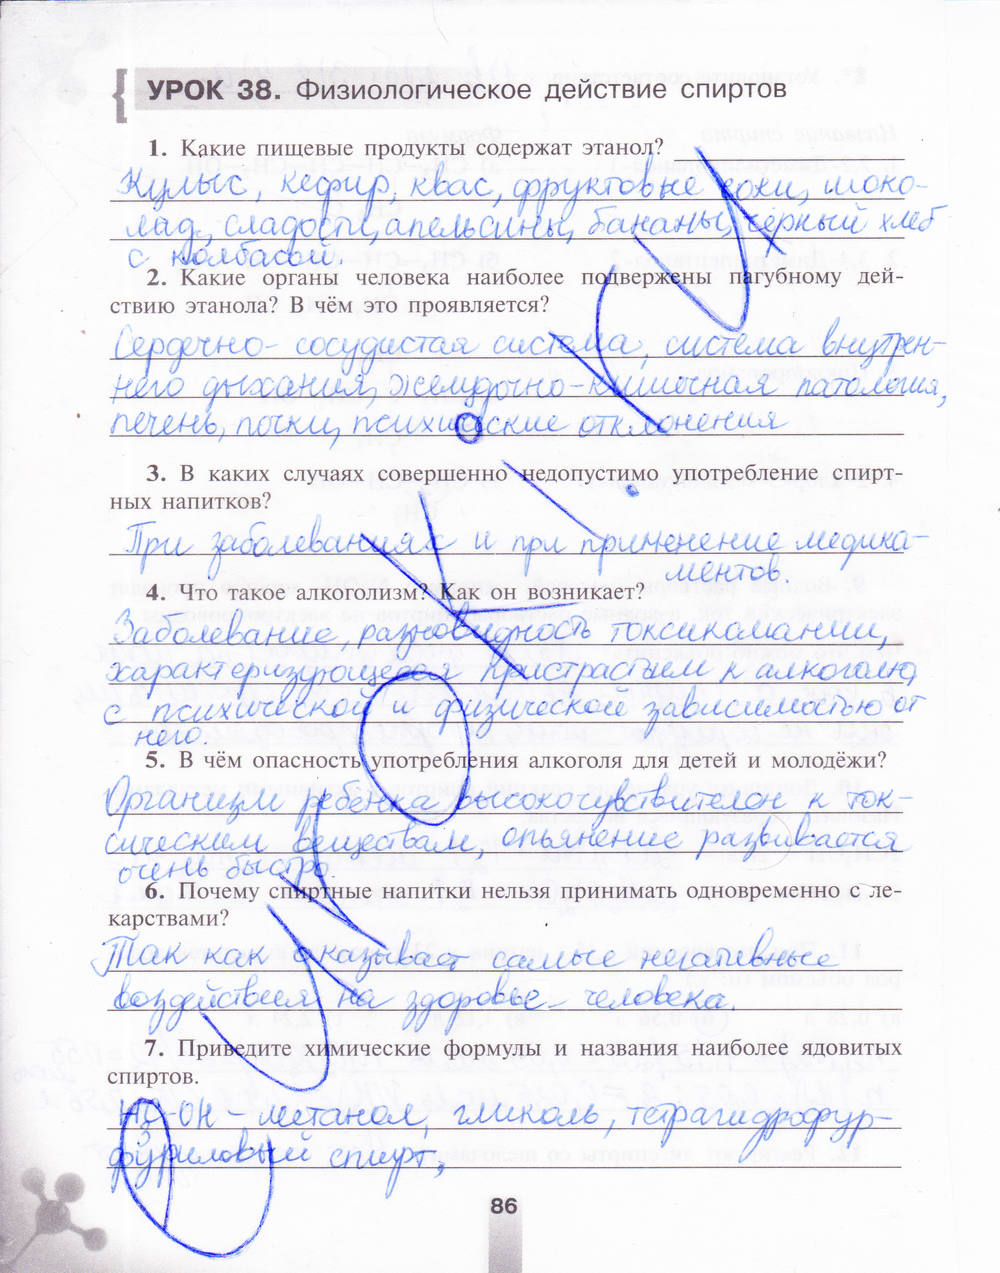 УРОК 38. Физиологическое действие спиртов
1. Какие пищевые продукты содержат этанол?
Кумыс, кефир, квас, фруктовые соки, шоко-
лад, сладости, апельсины, бананы, чёрный хлеб
с колбасой.
2. Какие органы человека наиболее подвержены пагубному дей-
ствию этанола? В чём это проявляется?
Сердечно-сосудистая система, система внутрен-
него дыхания, желудочно-кишечная патология,
печень, почки, психические отклонения
3. В каких случаях совершенно недопустимо употребление спирт-
ных напитков?
При заболеваниях и при применение медика-
ментов.
4. Что такое алкоголизм? Как он возникает?
Заболевание, разновидность токсикомании,
характеризующееся пристрастием к алкоголю,
с психической и физической зависимостью от
него.
5. В чём опасность употребления алкоголя для детей и молодёжи?
Организм ребёнка высокочувствителен к ток-
сическим веществам, опьянение развивается
очень быстро.
6. Почему спиртные напитки нельзя принимать одновременно с ле-
карствами?
Так как оказывает самые негативные
воздействия на здоровье человека.
7. Приведите химические формулы и названия наиболее ядовитых
спиртов.
- метанол, гликоль, тетрагидрофур-
фуриловый спирт,
86